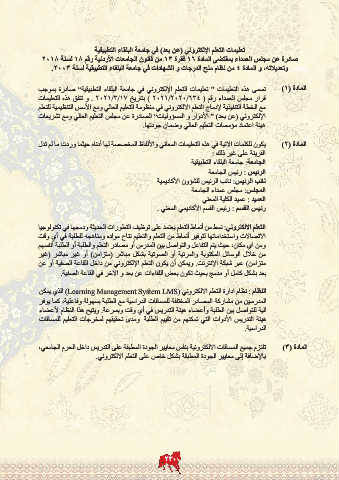 تعليمات التعلم الإلكتروني (عن بعد) في جامعة البلقاء التطبيقية
صادرة عن مجلس العمداء بمقتضى المادة ١٦ فقرة ١٣ من قانون الجامعات الأردنية رقم ١٨ لسنة ٢٠١٨
وتعديلاته، و المادة ٤ من نظام منح الدرجات و الشهادات في جامعة البلقاء التطبيقية لسنة ٢٠٠٣.
المادة (١) تسمى هذه التعليمات " تعليمات التعلم الإلكتروني في جامعة البلقاء التطبيقية" صادرة بموجب
قرار مجلس العمداء رقم (٢٠٢١/٢٠٢٠/٦٣٤) بتاريخ ٢٠٢١/٣/١٧ . و تتفق هذه التعليمات
مع الخطة التنفيذية لإدماج التعلم الإلكتروني في منظومة التعليم العالي ومع الأسس التنظيمية للتعلم
الإلكتروني (عن بعد) " الأدوار و المسؤوليات" الصادرة عن مجلس التعليم العالي ومع تشريعات
هيئة اعتماد مؤسسات التعليم العالي وضمان جودتها.
المادة (٢) يكون للكلمات الآتية في هذه التعليمات المعاني والألفاظ المخصصة لها أدناه حيثما وردت ما لم تدل
القرينة على غير ذلك :
الجامعة: جامعة البلقاء التطبيقية
الرئيس : رئيس الجامعة
نائب الرئيس: نائب الرئيس للشؤون الأكاديمية
المجلس: مجلس عمداء الجامعة
العميد : عميد الكلية المعني
رئيس القسم : رئيس القسم الأكاديمي المعني .
التعلم الإلكتروني: نمط من أنماط التعلم يعتمد على توظيف التطورات الحديثة ودمجها في تكنولوجيا
الاتصالات واستخداماتها لتوفير أنماط من التعلم والتعليم نتاج مواده ومناهجه للطلبة في أي وقت
ومن أي مكان، حيث يتم التفاعل والتواصل بين المدرس أو مصادر التعلم والطلبة أو الطلبة أنفسهم
من خلال الوسائل المكتوبة والمرئية أو الصوتية بشكل مباشر (متزامن) أو غير مباشر (غير
متزامن) عبر شبكة الإنترنت. ويمكن أن يكون التعلم الإلكتروني من داخل القاعة الصفية أو عن
بعد بشكل كامل أو مدمج بحيث تكون بعض اللقاءات عن بعد و الآخر في القاعة الصفية.
النظام : نظام إدارة التعلم الالكتروني (Learning Management System LMS) الذي يمكن
المدرسين من مشاركة المصادر المختلفة للمساقات الدراسية مع الطلبة بسهولة وفاعلية، كما يوفر
آلية للتواصل بين الطلبة وأعضاء هيئة التدريس في أي وقت وبسرعة، ويتيح هذا النظام لأعضاء
هيئة التدريس الأدوات التي تمكنهم من تقييم الطلبة ومدى تحقيقهم لمخرجات التعلم للمساقات
الدراسية.
المادة (٣) تلتزم جميع المساقات الالكترونية بنفس معايير الجودة المطبقة على التدريس داخل الحرم الجامعي،
بالإضافة إلى معايير الجودة المطبقة بشكل خاص على التعلم الالكتروني.